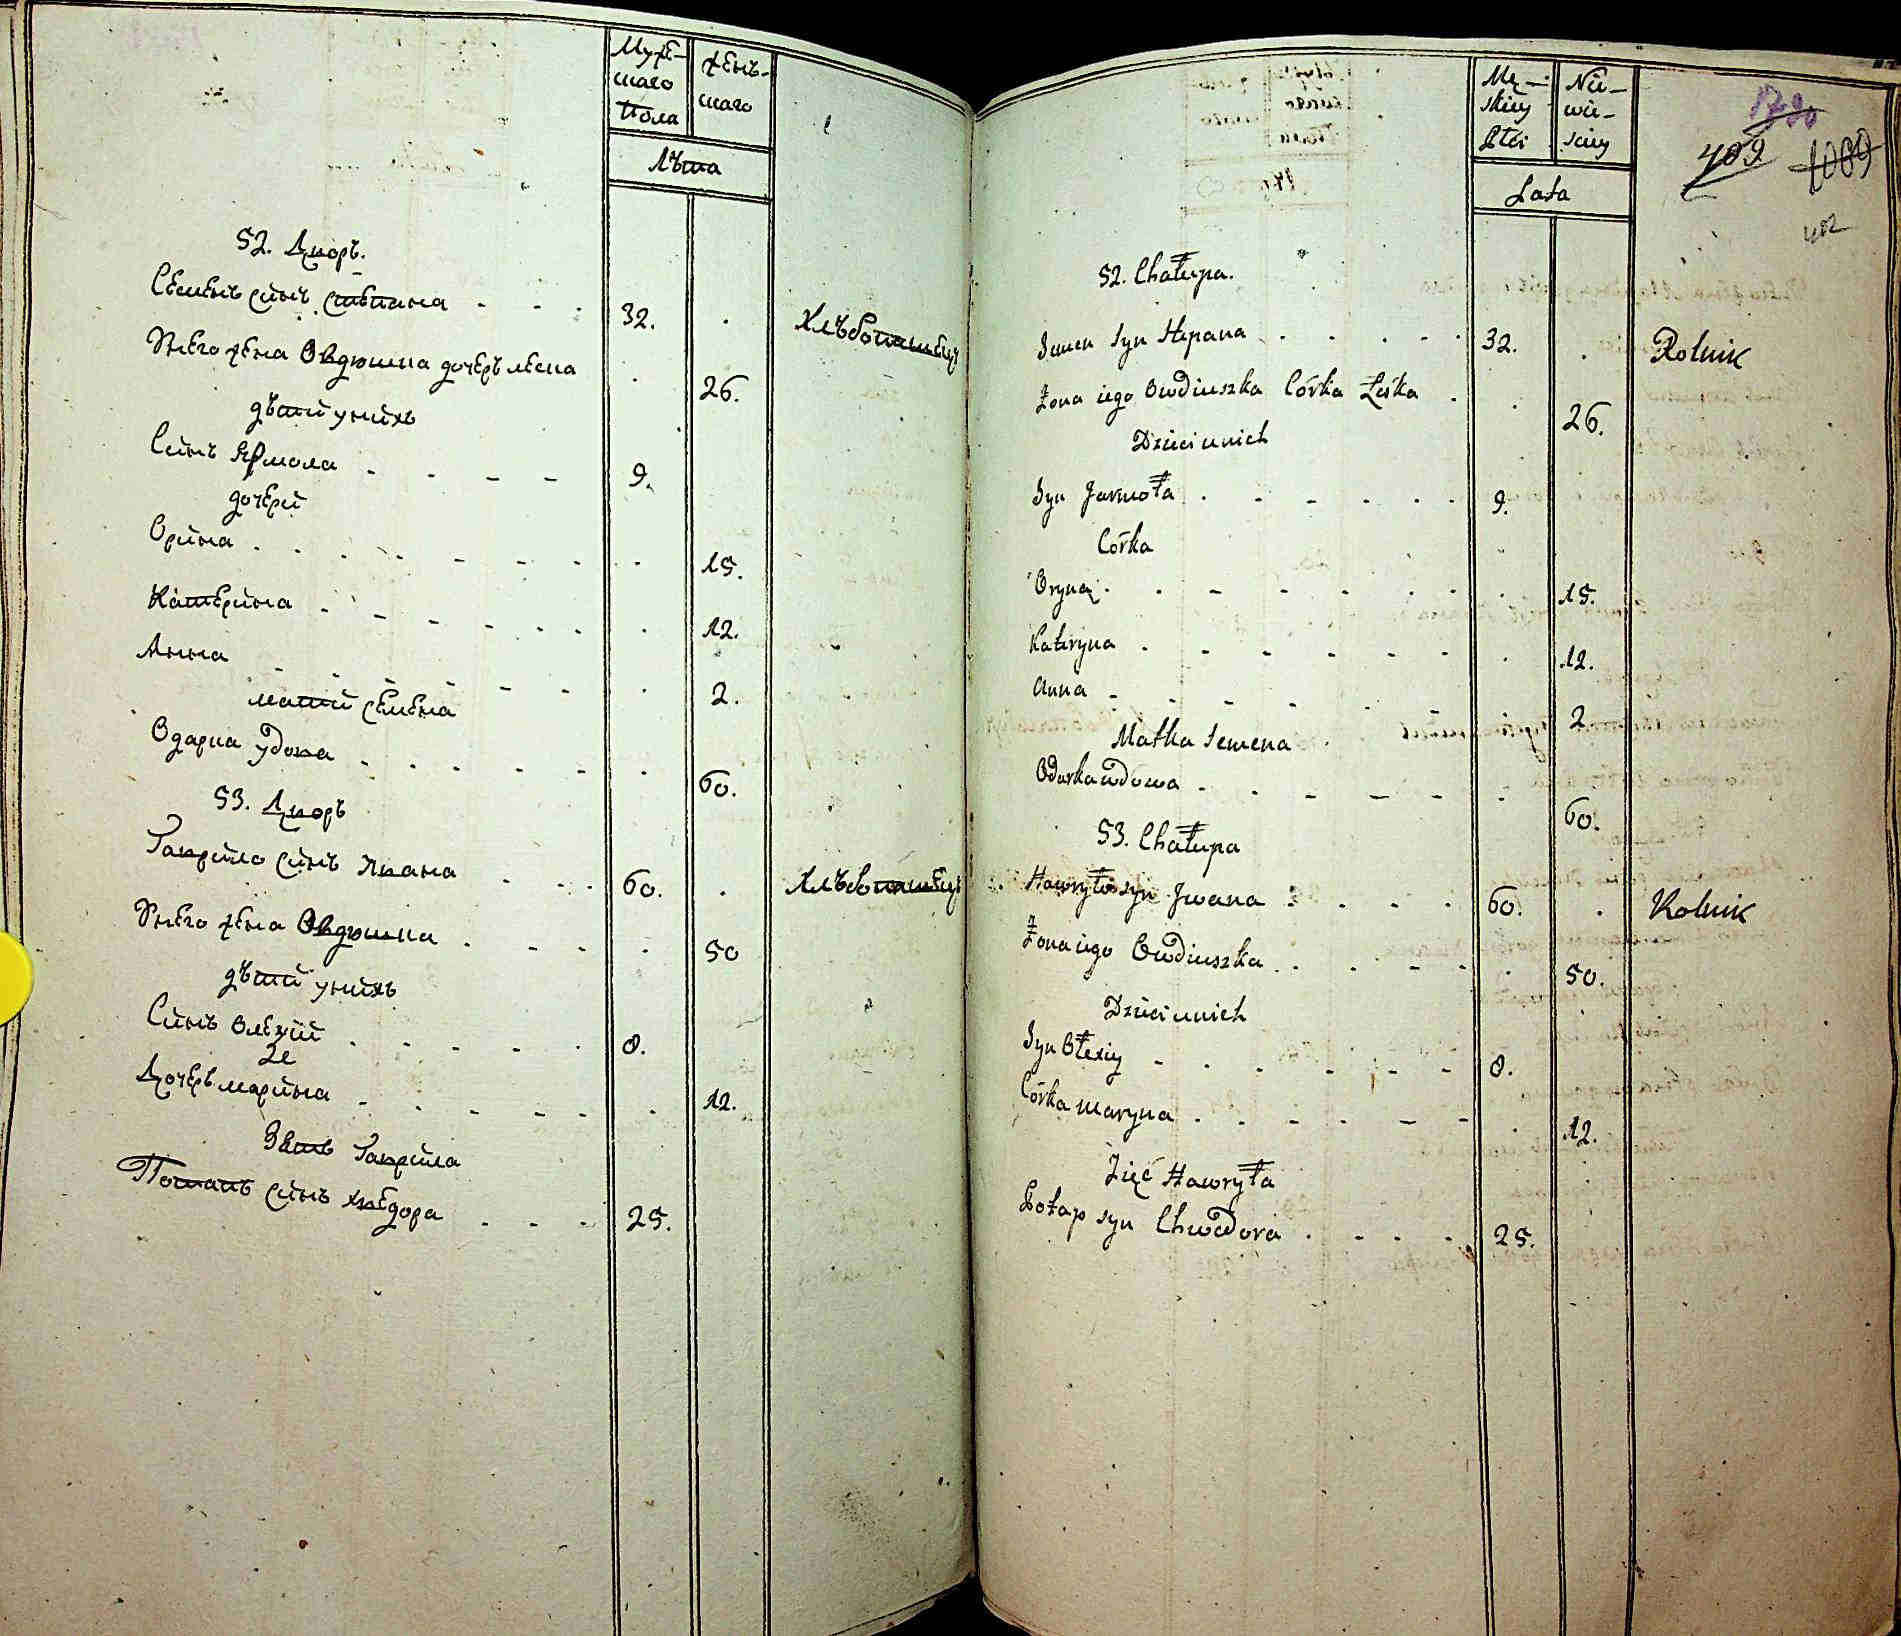 Мужескаго Пола
женьскаго
Лѣта
52. Дворъ.
Семенъ сынъ степана - - - 32. . Хлѣбопашецъ
Унего жена Овдюшка дочерь леска . 26.
дѣти унихъ
Сынъ Ярмола - - - - 9.
дочери
Орина . . . . - - - - - 15.
Катерина - - - - - - . 12.
Анна - - - - - - . 2.
мати семена
Одарка удова . . . . - - - 60.
53. Дворъ
Гаврило сынъ Ивана - - . 60. . Хлѣбопашецъ
Унего жена Овдюшка . - - - 50
дѣти унихъ
Сынъ Олексій . . . - - . 8.
2е
Дочерь марина - - - - - - . 12.
Зять Гаврила
Потапъ сынъ хведора - - - 25.
Mę-
skiey
Płci
Nie-
wie-
sciey
Lata
1790
409
1089
402
52. Chałupa.
Semen syn Stepana . - - - . 32. . Rolnik
Żona iego Owdiuszka Córka Leśka . . 26.
Dzieci u nich
Syn Jarmoła . - - - - . 9.
Córka
Oryna . . - - - - . . 15.
Kateryna . - - - - - . 12.
Anna - - - - - - . 2
Matka Semena
Odarka wdowa - - - - - - 60.
53. Chałupa
Hawryło syn Jwana : . . . . 60. . Rolnik
Żona iego Owdiuszka . . - - - . 50.
Dzieci u nich
Syn Ołexiy - - . - - - - 8.
Córka maryna . . . - - - . 12.
Zięć Hawryła
Potap syn Chwedora . . . . 25.